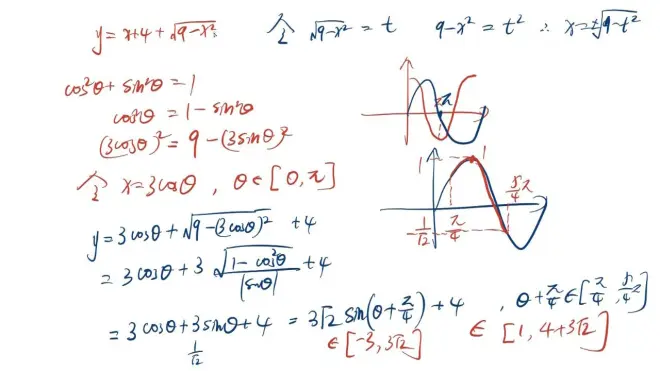 y = x+4+√(9-x²)   令 √(9-x²) = t   9-x² = t²   ∴ x=±√(9-t²)
cos²θ + sin²θ = 1
cos²θ = 1 - sin²θ
(3cosθ)² = 9 - (3sinθ)²
令 x=3cosθ , θ∈[0,π]
y = 3cosθ + √(9-(3cosθ)²) + 4
= 3cosθ + 3√(1-cos²θ) + 4
|sinθ|
= 3cosθ + 3sinθ + 4 = 3√2 sin(θ+π/4) + 4 , θ+π/4 ∈ [π/4, 5/4π]
1/√2   ∈ [-3, 3√2]   ∈ [1, 4+3√2]
π
1   1
-1/√2   π/4   5/4π